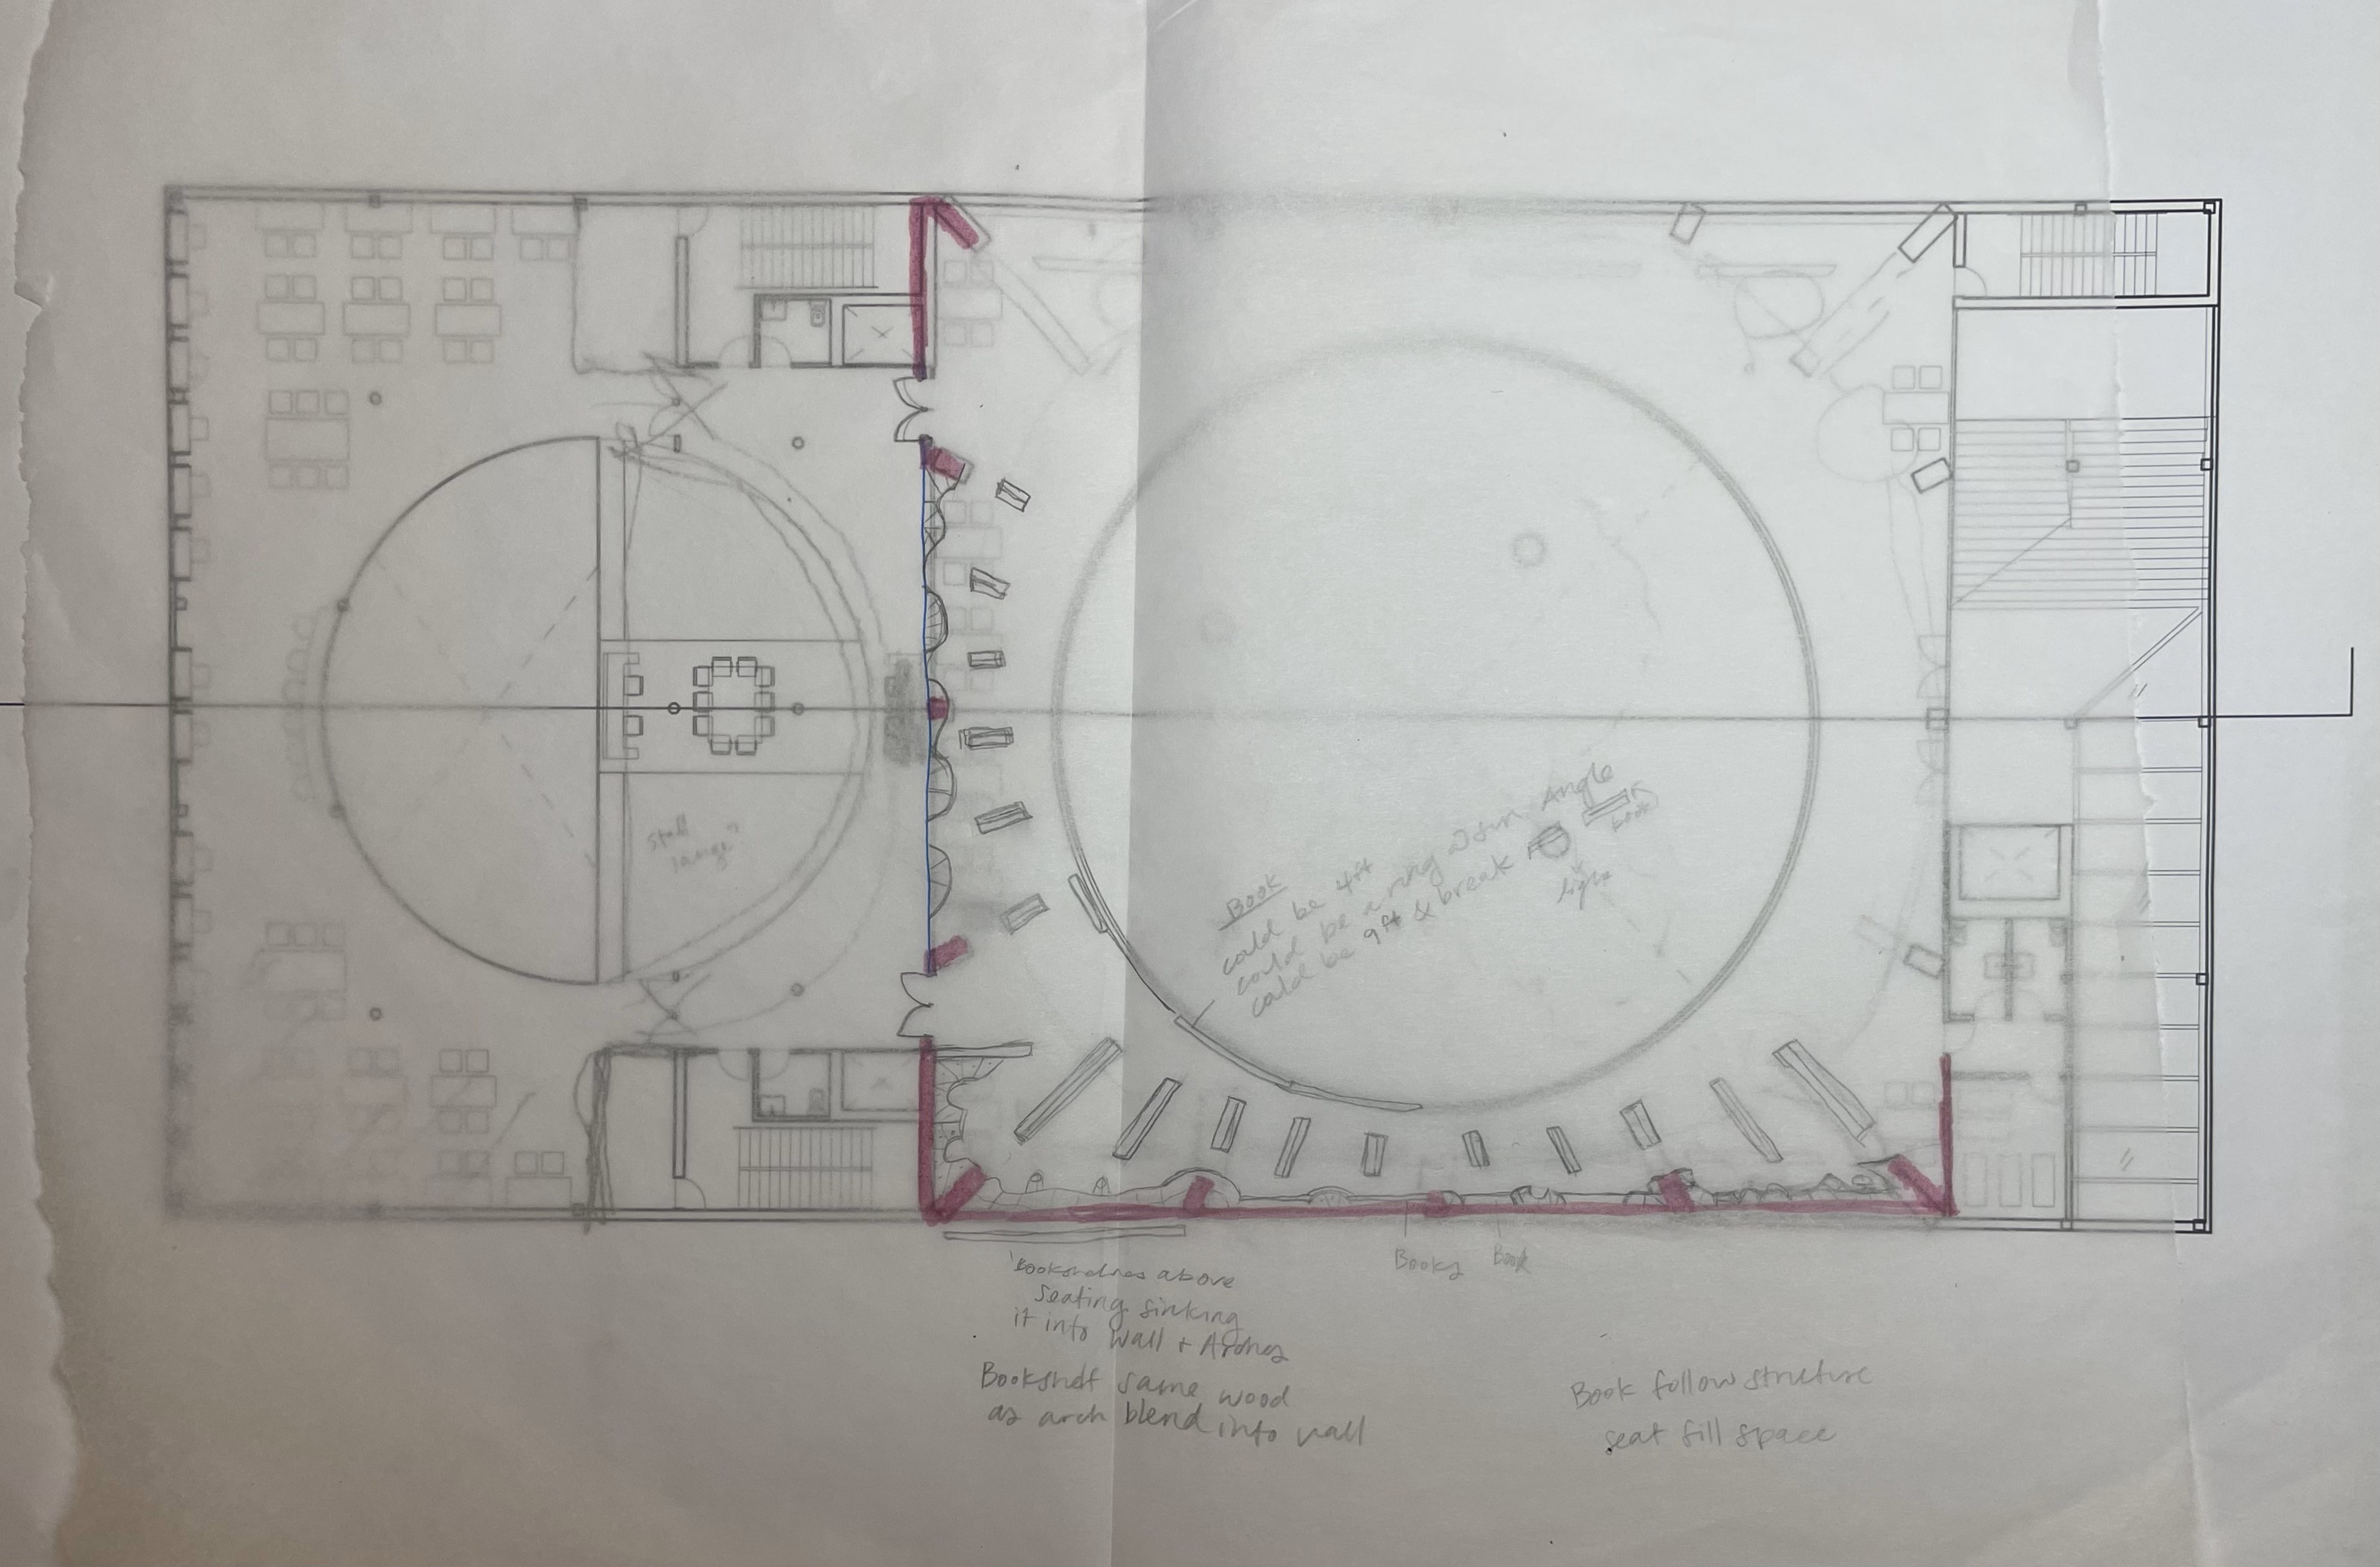 staff
Book
could be 4ft
could be a ring
sun Angle
could be 9ft & break
book
light
Books
Book
Bookshelves above
Seating sinking
it into wall +
Bookshelf same wood
as arch blend into wall
Book follow structure
seat fill space